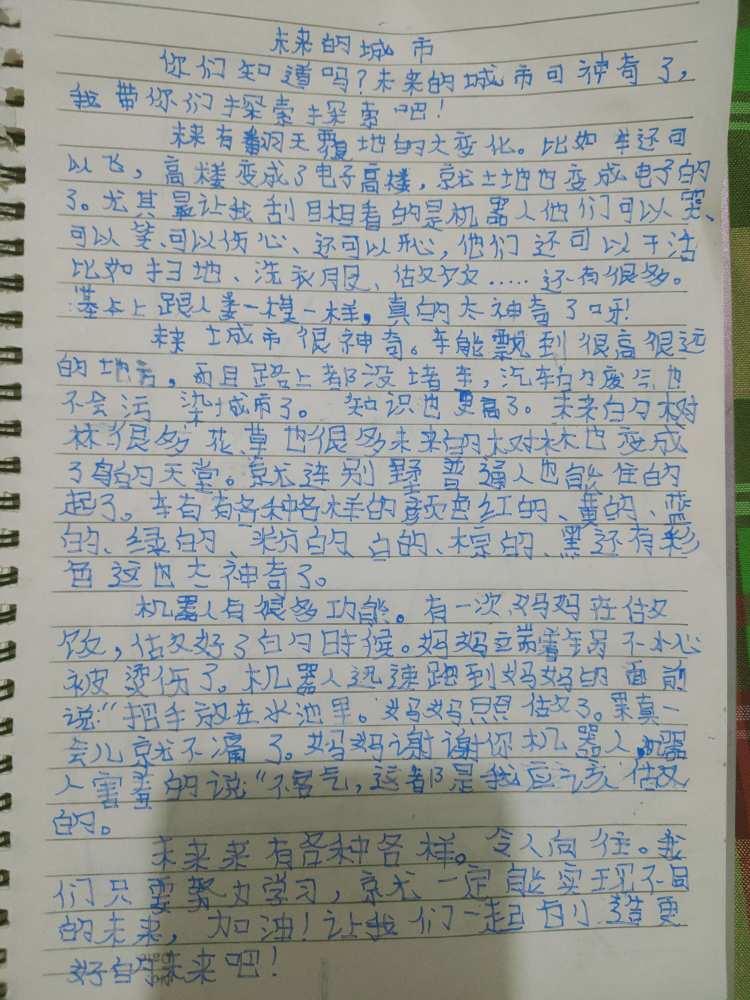 未来的城市
你们知道吗?未来的城市可神奇了,
我带你们探索探索吧!
未来有翻天覆地的大变化。比如车还可
以飞,高楼变成了电子高楼,就土地也变成电子的
了。尤其最让我刮目相看的是机器人他们可以哭、
可以笑、可以伤心、还可以开心,他们还可以干活
比如扫地、洗衣服、做饭.....还有很多。
基本上跟人类一模一样,真的太神奇了呀!
未来城市很神奇。车能飘到很高很远
的地方,而且路上都没堵车,汽车的废气也
不会污染城市了。知识也更高了。未来的树
林很多花草也很多未来的树林也变成
了鸟的天堂。就连别墅普通人也能住的
起了。车有有各种各样的颜色红的、黄的、蓝
的、绿的、粉的、白的、棕的、黑还有彩
色这也太神奇了。
机器人有很多功能。有一次妈妈在做
饭,做好了的时候。妈妈端着锅不小心
被烫伤了。机器人迅速跑到妈妈的面前
说:“把手放在水池里。妈妈照做了。果真一
会儿就不痛了。妈妈谢谢你机器人,机器
人害羞的说“不客气,这都是我应该做
的。
未来来有各种各样。令人向往。我
们只要努力学习,就一定能实现不同
的未来,加油!让我们一起创造更
好的未来吧!